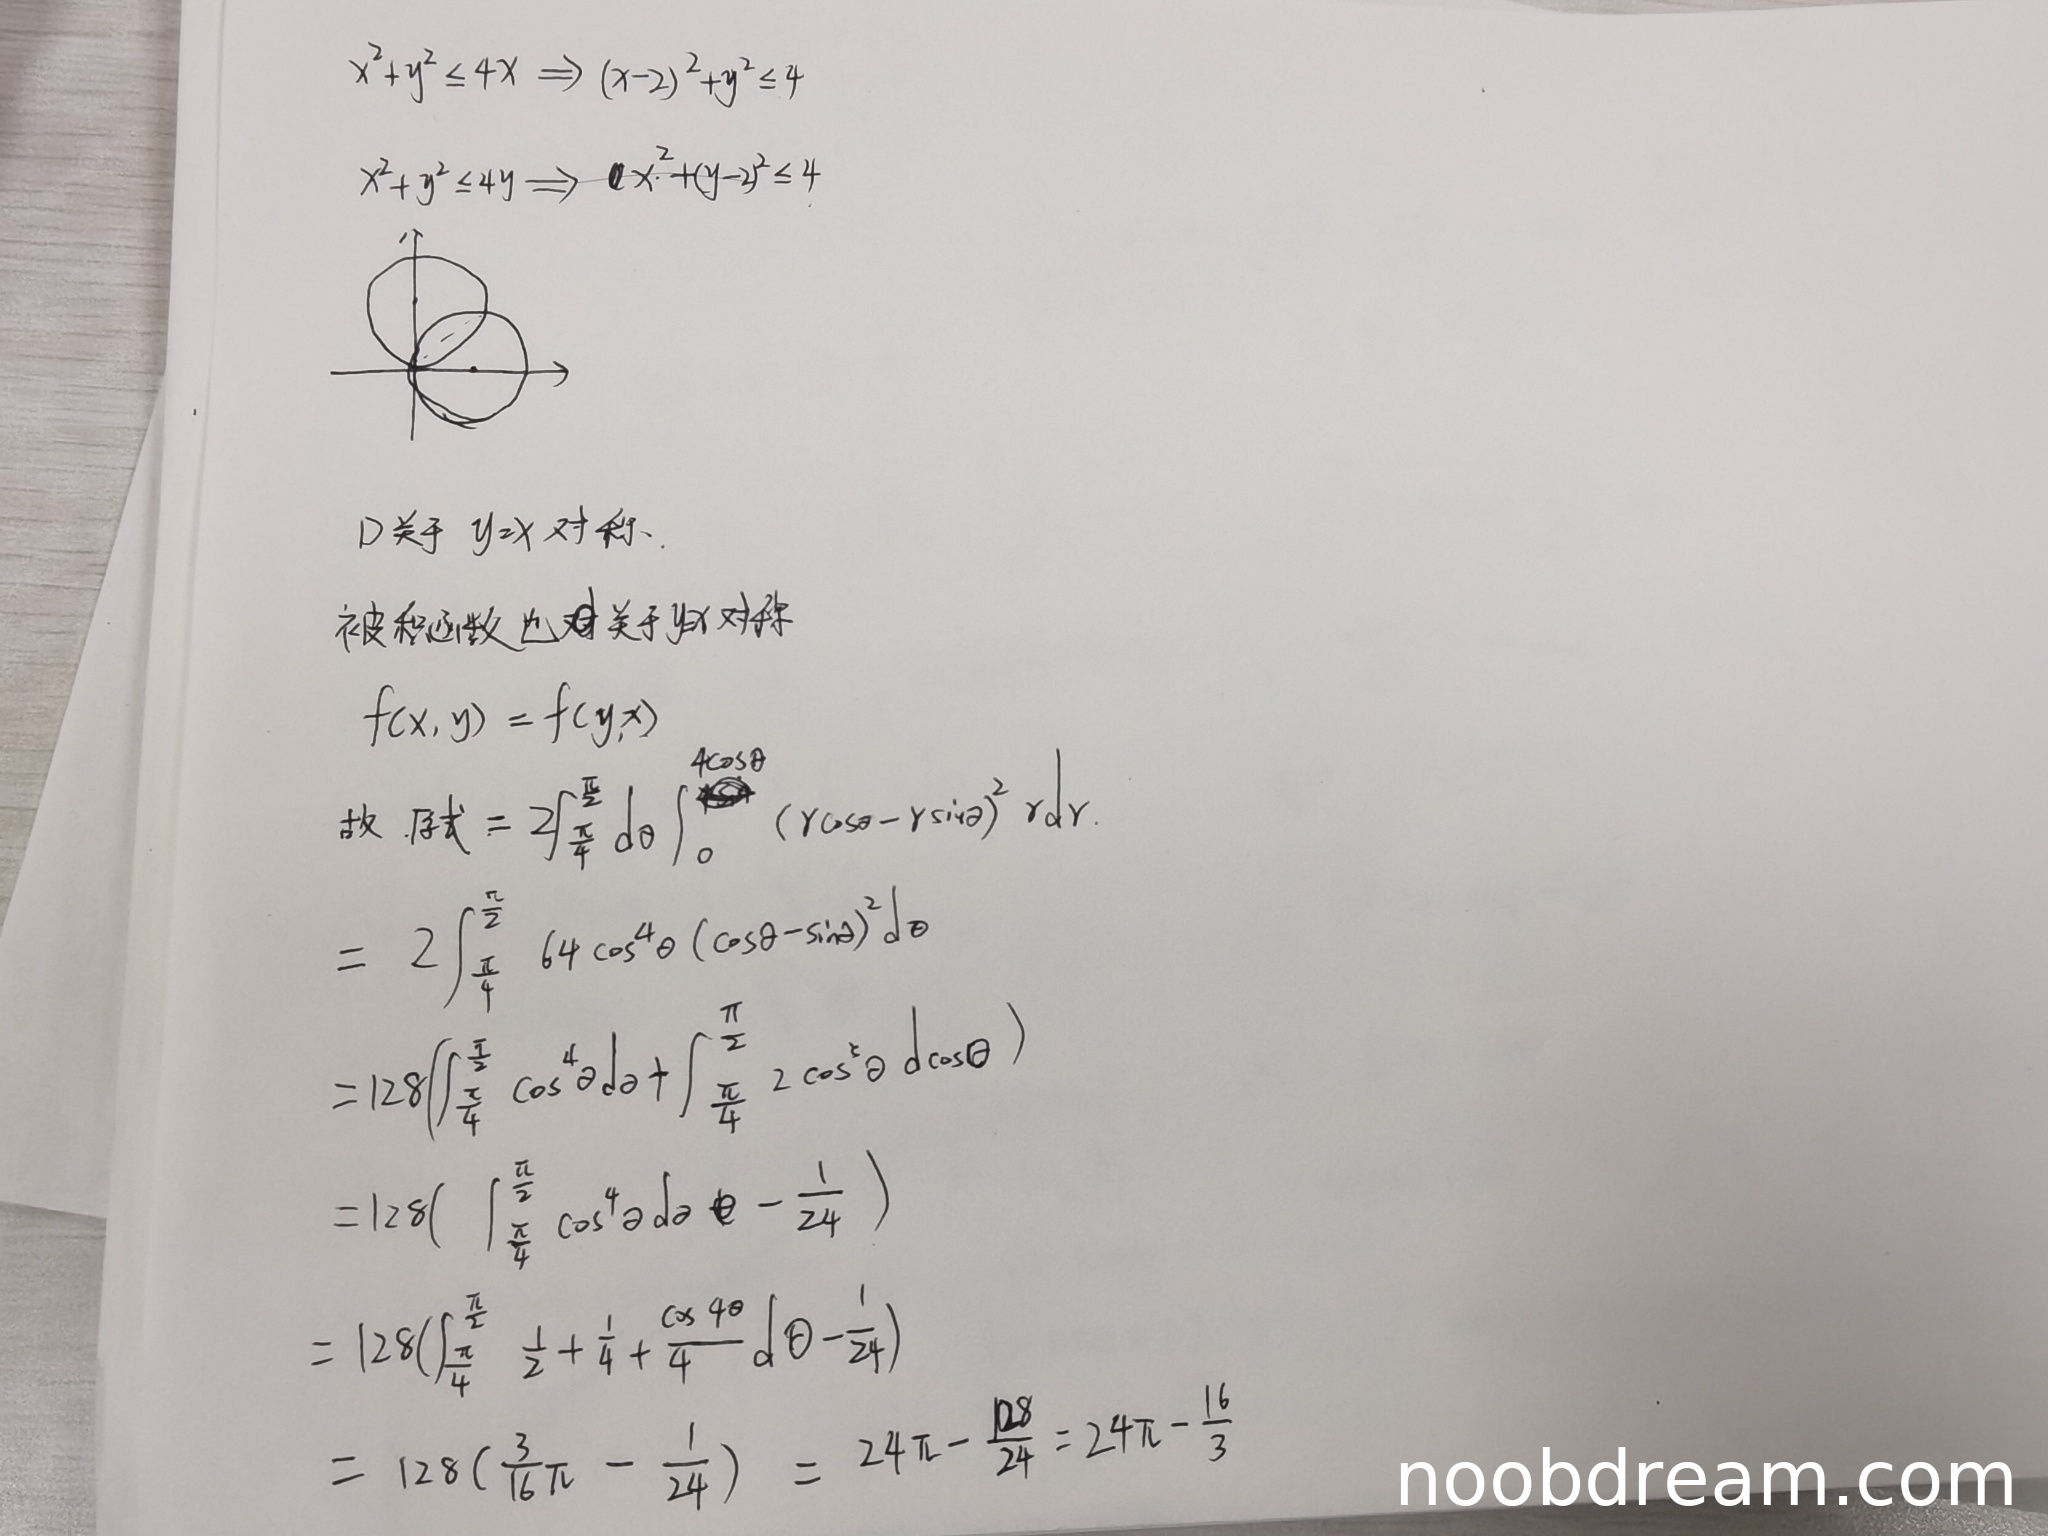 x²+y² ≤ 4x ⇒ (x-2)²+y² ≤ 4
x²+y² ≤ 4y ⇒ x²+(y-2)² ≤ 4
D关于 y=x 对称.
被积函数也关于y=x对称
f(x,y) = f(y,x)
故 原式 = 2∫_{π/4}^{π/2} dθ ∫_0^{4cosθ} (rcosθ - rsinθ)² rdr.
= 2∫_{π/4}^{π/2} 64cos⁴θ(cosθ-sinθ)²dθ
=128(∫_{π/4}^{π/2} cos⁴θdθ + ∫_{π/4}^{π/2} 2cos⁵θ dcosθ)
=128(∫_{π/4}^{π/2} cos⁴θdθ - 1/24)
=128(∫_{π/4}^{π/2} 1/2 + 1/4 + cos4θ/4 dθ - 1/24)
= 128(3/16π - 1/24) = 24π - 128/24 = 24π - 16/3
noobdream.com